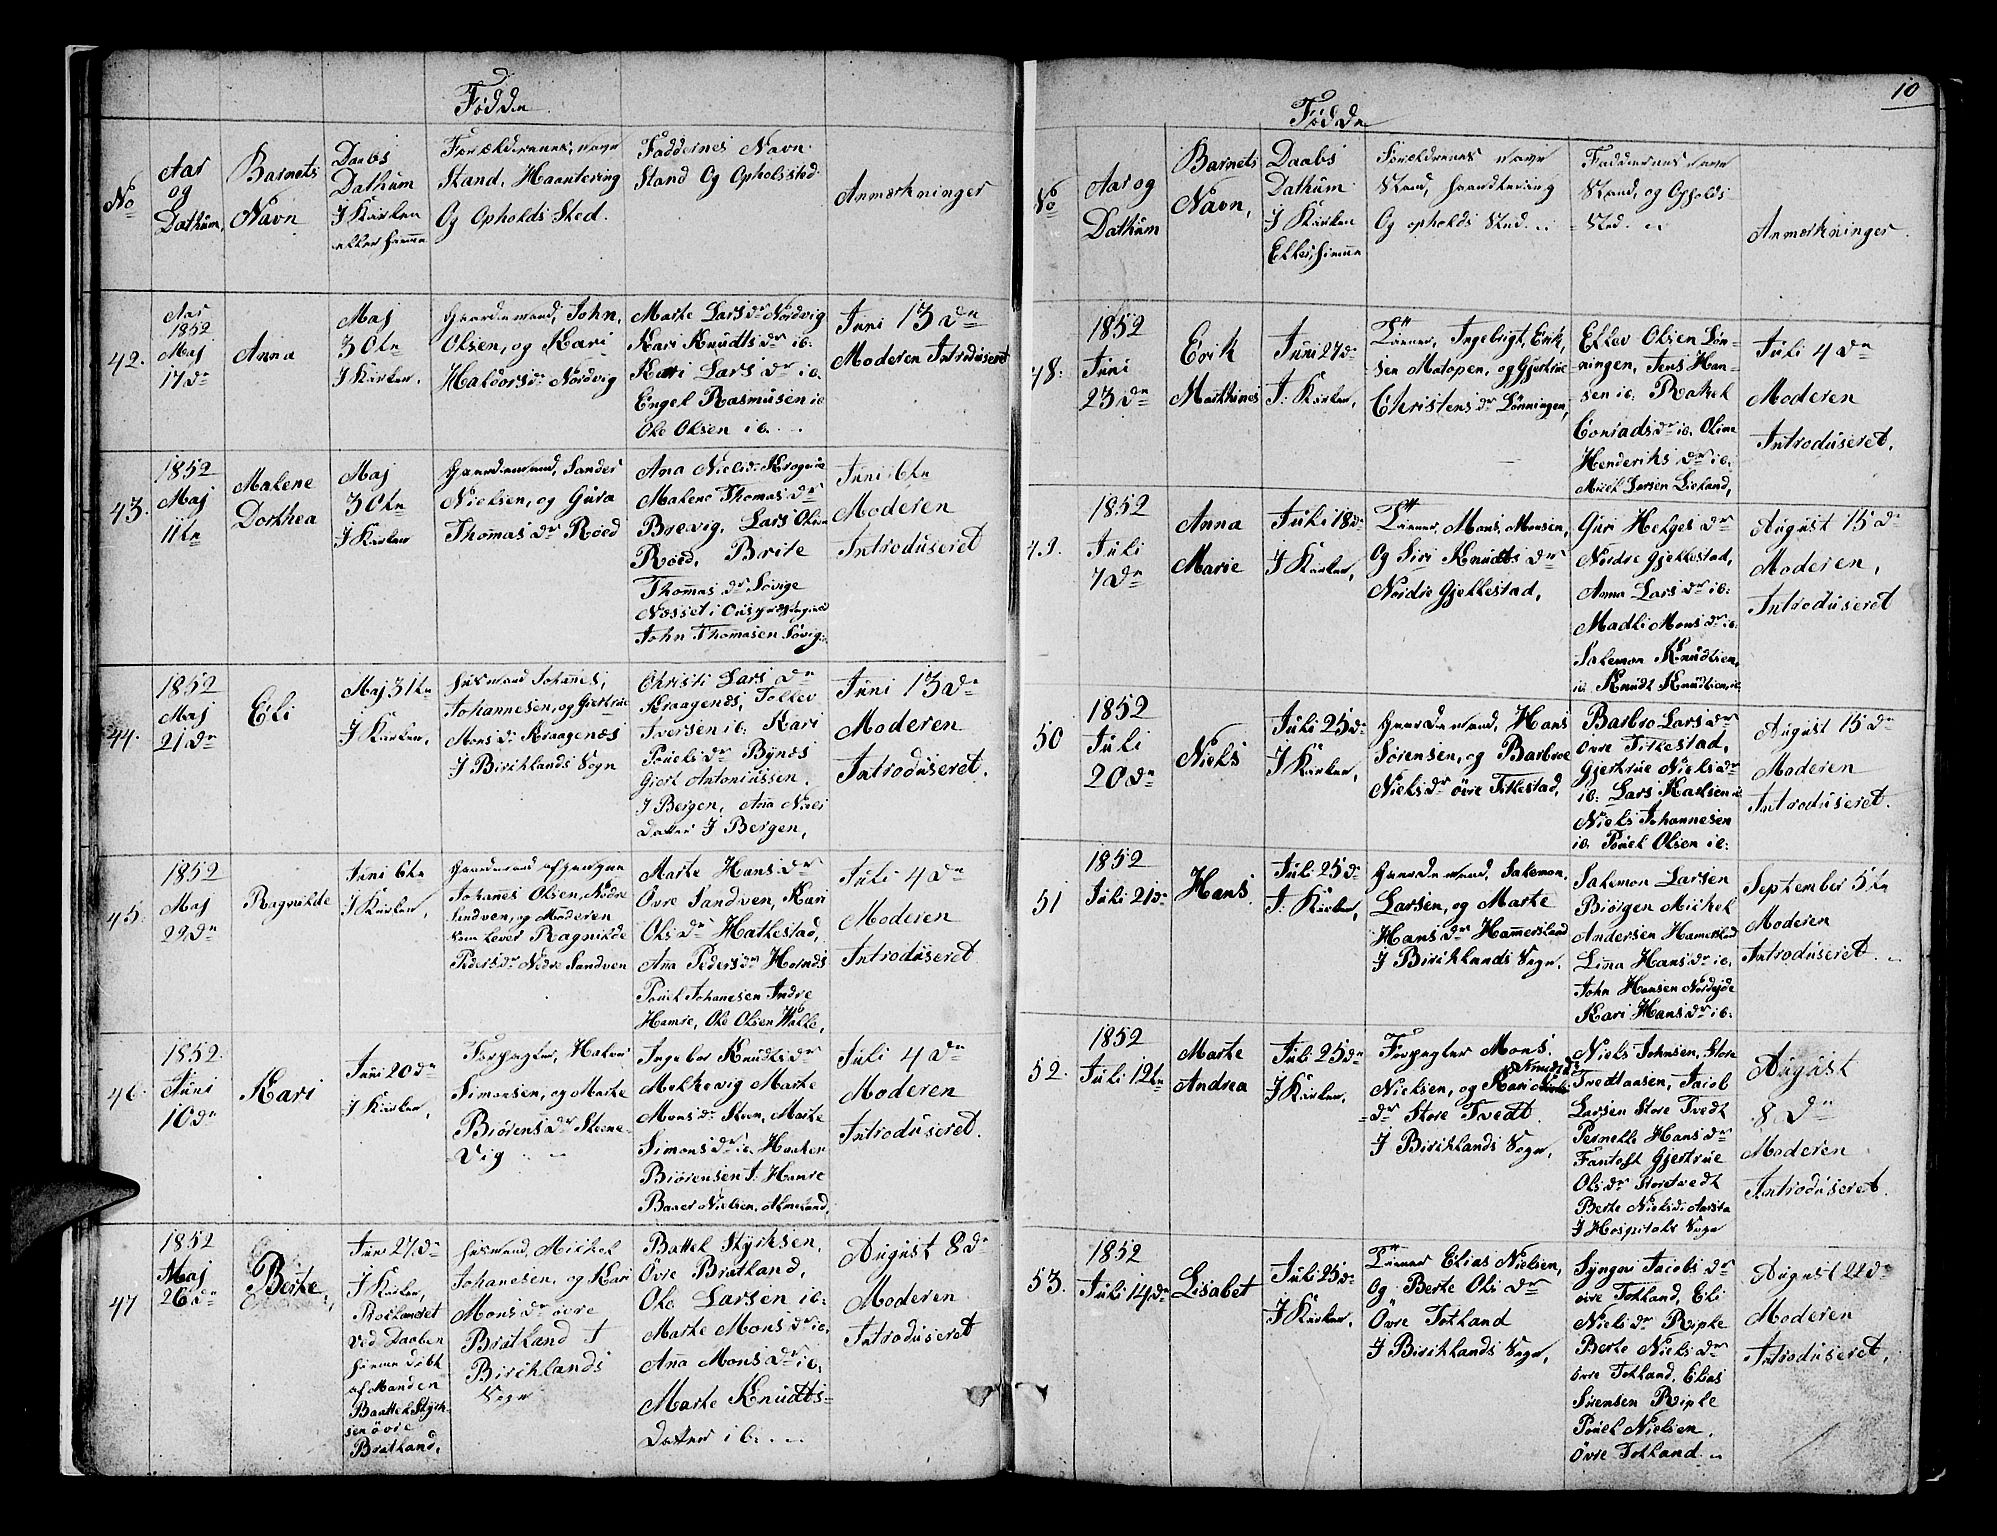 10
Fødde
No
Aar
og
Dathum,
Barnets
Navn
Daabs
Dathum
I Kirken
eller hiemme
Forældrenes, navn
Stand, Haantering
Og Opholds Sted.
Faddernes Navn
Stand Og Opholssted
Anmærkninger
42.
Aar
1852
Maj
17de
Anna
Maj
30te
I Kirken.
Gaardemand, John,
Olsen, og Kari
Haldorsdr Nordvig
Marte Larsdr Nordvig
Kari Knudtsdr ib.
Kari Larsdr ib.
Engel Rasmusen ib
Ole Olsen ib. . .
Juni 13de
Moderen Introduseret
43.
1852
Maj
11te
Malene
Dorthea
Maj
30te
I Kirken
Gaardemand, Sander
Nielsen, og Gura
Thomasdr Røed
Ana Nielsdr
Malene Thomasdr
Brevig, Lars Olsen
Roed, Brite
Thomasdr Søvige
Næsset i
John Thomasen Søvig.
Juni 6te
Moderen
Introduseret
44.
1852
Maj
21de
Eli
Maj 31te
I Kirken.
Husmand Johannes,
Johannesen, og Giertrue
Monsdr Kraagenæs
I Birchlands Sogn
Christi Larsdr
Kraagenæs, Tollev
Iversen ib. Kari
Pouelsdr Bynæs
Giert Antoniussen.
I Bergen, Ana Niels
Datter I Bergen,
Juni 13de
Moderen
Introduseret.
45.
1852
Maj
22de
Ragnilde
Juni 6te
I Kirken,
Gaardmand afgangne
Johanes Olsen, Nedre
Sandven, og Moderen
som lever Ragnilde
Pedersdr Nedre Sandven
Marte Hansdr
Øvre Sandven, Kari
Olsdr Hatlestad,
Ana Pedersdr Hornæs
Pouel Johanesen Indre
Hamre, Ole Olsen Walle,
Juli 4de
Moderen
Introduseret
46.
1852
Juni
10de
Kari
Juni 20de
I Kirken,
Forpagter, Halvor
Simonsen, og Marte
Biørensdr Steene-
Vig . . -
Ingebor Knudtsdr
Melkevig Marte
Monsdr Steen, Marte
Simonsdr ib. Haaken
Biørensen I. Hamre
Baner Nielsen,
Juli 4de
Moderen
Introduseret.
47
1852
Maj
26de
Berte.
Juni 27de
I Kirken,
Rocklamert
ved Daaben
hieme døbt
af Manden
Baattel Styrk-
sen øvre
Bratland,
Husmand, Mickel
Johanesen, og Kari
Monsdr øvre
Bratland I
Birchlands
Sogn
Battel Styrksen,
Øvre Bratland,
Ole Larsen ib:
Marte Monsdr ib,
Ana Monsdr ib:
Marte Knudts-
Datter ib. . . .
August 8de
Moderen
Introduseret
Fødde
No
Aar og
Dathum
Barnets
Navn,
Daabs
Dathum
I Kirken
Eller, hieme
Foreldrenes navn
Stand, haandtering
Og opholds Sted. . :
Faddernes navn
Stand, og Opholds
Sted. . .
Anmerkninger.
48.
1852
Juni
23de
Erik
Marthines
Juni 27de
I: Kirken,
Tiener, Ingebrigt, Erik,
sen Matopen, og Gjertrue
Christensdr Lønningen,
Ellev Olsen Løn-
ningen, Jens Han-
sen ib: Rakel
Conradsdr ib. Oline
Henderiksdr ib.
Michel Larsen Lieland,
Juli 4de
Moderen
Introduseret.
49.
1852
Juli
7de
Anna
Marie
Juli 18de
I Kirken,
Tiener, Mons, Monsen,
Og Siri Knudtsdr
Nordre Gjellestad,
Guri Helgesdr
Nordre Gjellestad,
Anna Larsdr ib:
Madli Monsdr ib:
Salemon Knudtsen,
ib Knudt Knudtsen, ib
August 15de
Moderen,
Introduseret
50
1852
Juli
20de
Niels
Juli 25de
I Kirken,
Gaardemand, Hans
Sørensen, og Barbroe
Nielsdr øvre Titlestad,
Barbro Larsdr
Øvre Titlestad,
Gjertrue Nielsdr
ib: Lars Karlsen ib
Niels Johannesen
ib. Pouel Olsen ib:
August 15de
Moderen
Introduseret.
51
1852
Juli 21de
Hans.
Juli 25de
I. Kirken,
Gaardemand, Salemon,
Larsen, og Marte
Hansdr Hammersland
I Birchlands Sogn,
Salemon Larsen
Biørgen Mickel
Andersen Hamersland
Lina Hansdr ib:
John Hansen Nordejde
Kari Hansdr ib:
September 5te
Moderen
Introduseret. . .
52.
1852
Juli 12te
Marte
Andrea
Juli 25de
I Kirken.
Forpagter Mons.
Nielsen, og Kari Knudts
dr Store Tvedt
I Birchlands Sogn,
Niels Johnsen, Store
Tvedtaasen, Jacob
Larsen Store Tvedt
Pernelle Hansdr
Fantoft Gjertrue
Olsdr Storetvedt
Berte Nielsdr Aarsta
I Hospitals Sogn
August
8de
Moderen
Introduseret.
53.
1852
Juli 14de
Lisabet
Juli 25de
I Kirken.
Tiener Elias Nielsen,
Og Berte Olsdr
Øvre Totland
I Birchlands Sogn,
Synger Jacobsdr
øvre Totland, Eli
Nielsdr Riple
Berte Nielsdr
övre Totland, Elias
Sørensen Riple
Pouel Nielsen,
Øvre Totland . .
August 22de
Moderen
Introduseret,